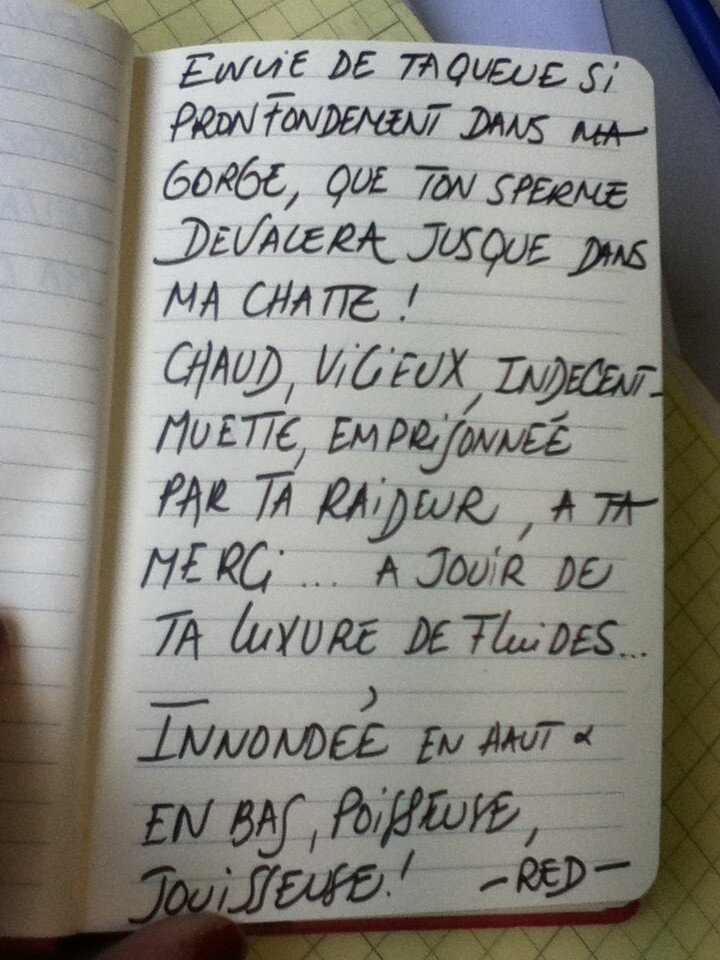 ENVIE DE TA QUEUE SI
PRONFONDEMENT DANS MA
GORGE, QUE TON SPERME
DEVALERA JUSQUE DANS
MA CHATTE !
CHAUD, VICIEUX, INDECENT-
MUETTE, EMPRISONNEÉ
PAR TA RAIDEUR, A TA
MERCI ... A JOUIR DE
TA LUXURE DE FLUIDES...
INNONDÉE EN HAUT &
EN BAS, POISSEUSE,
JOUISSEUSE ! - RED -